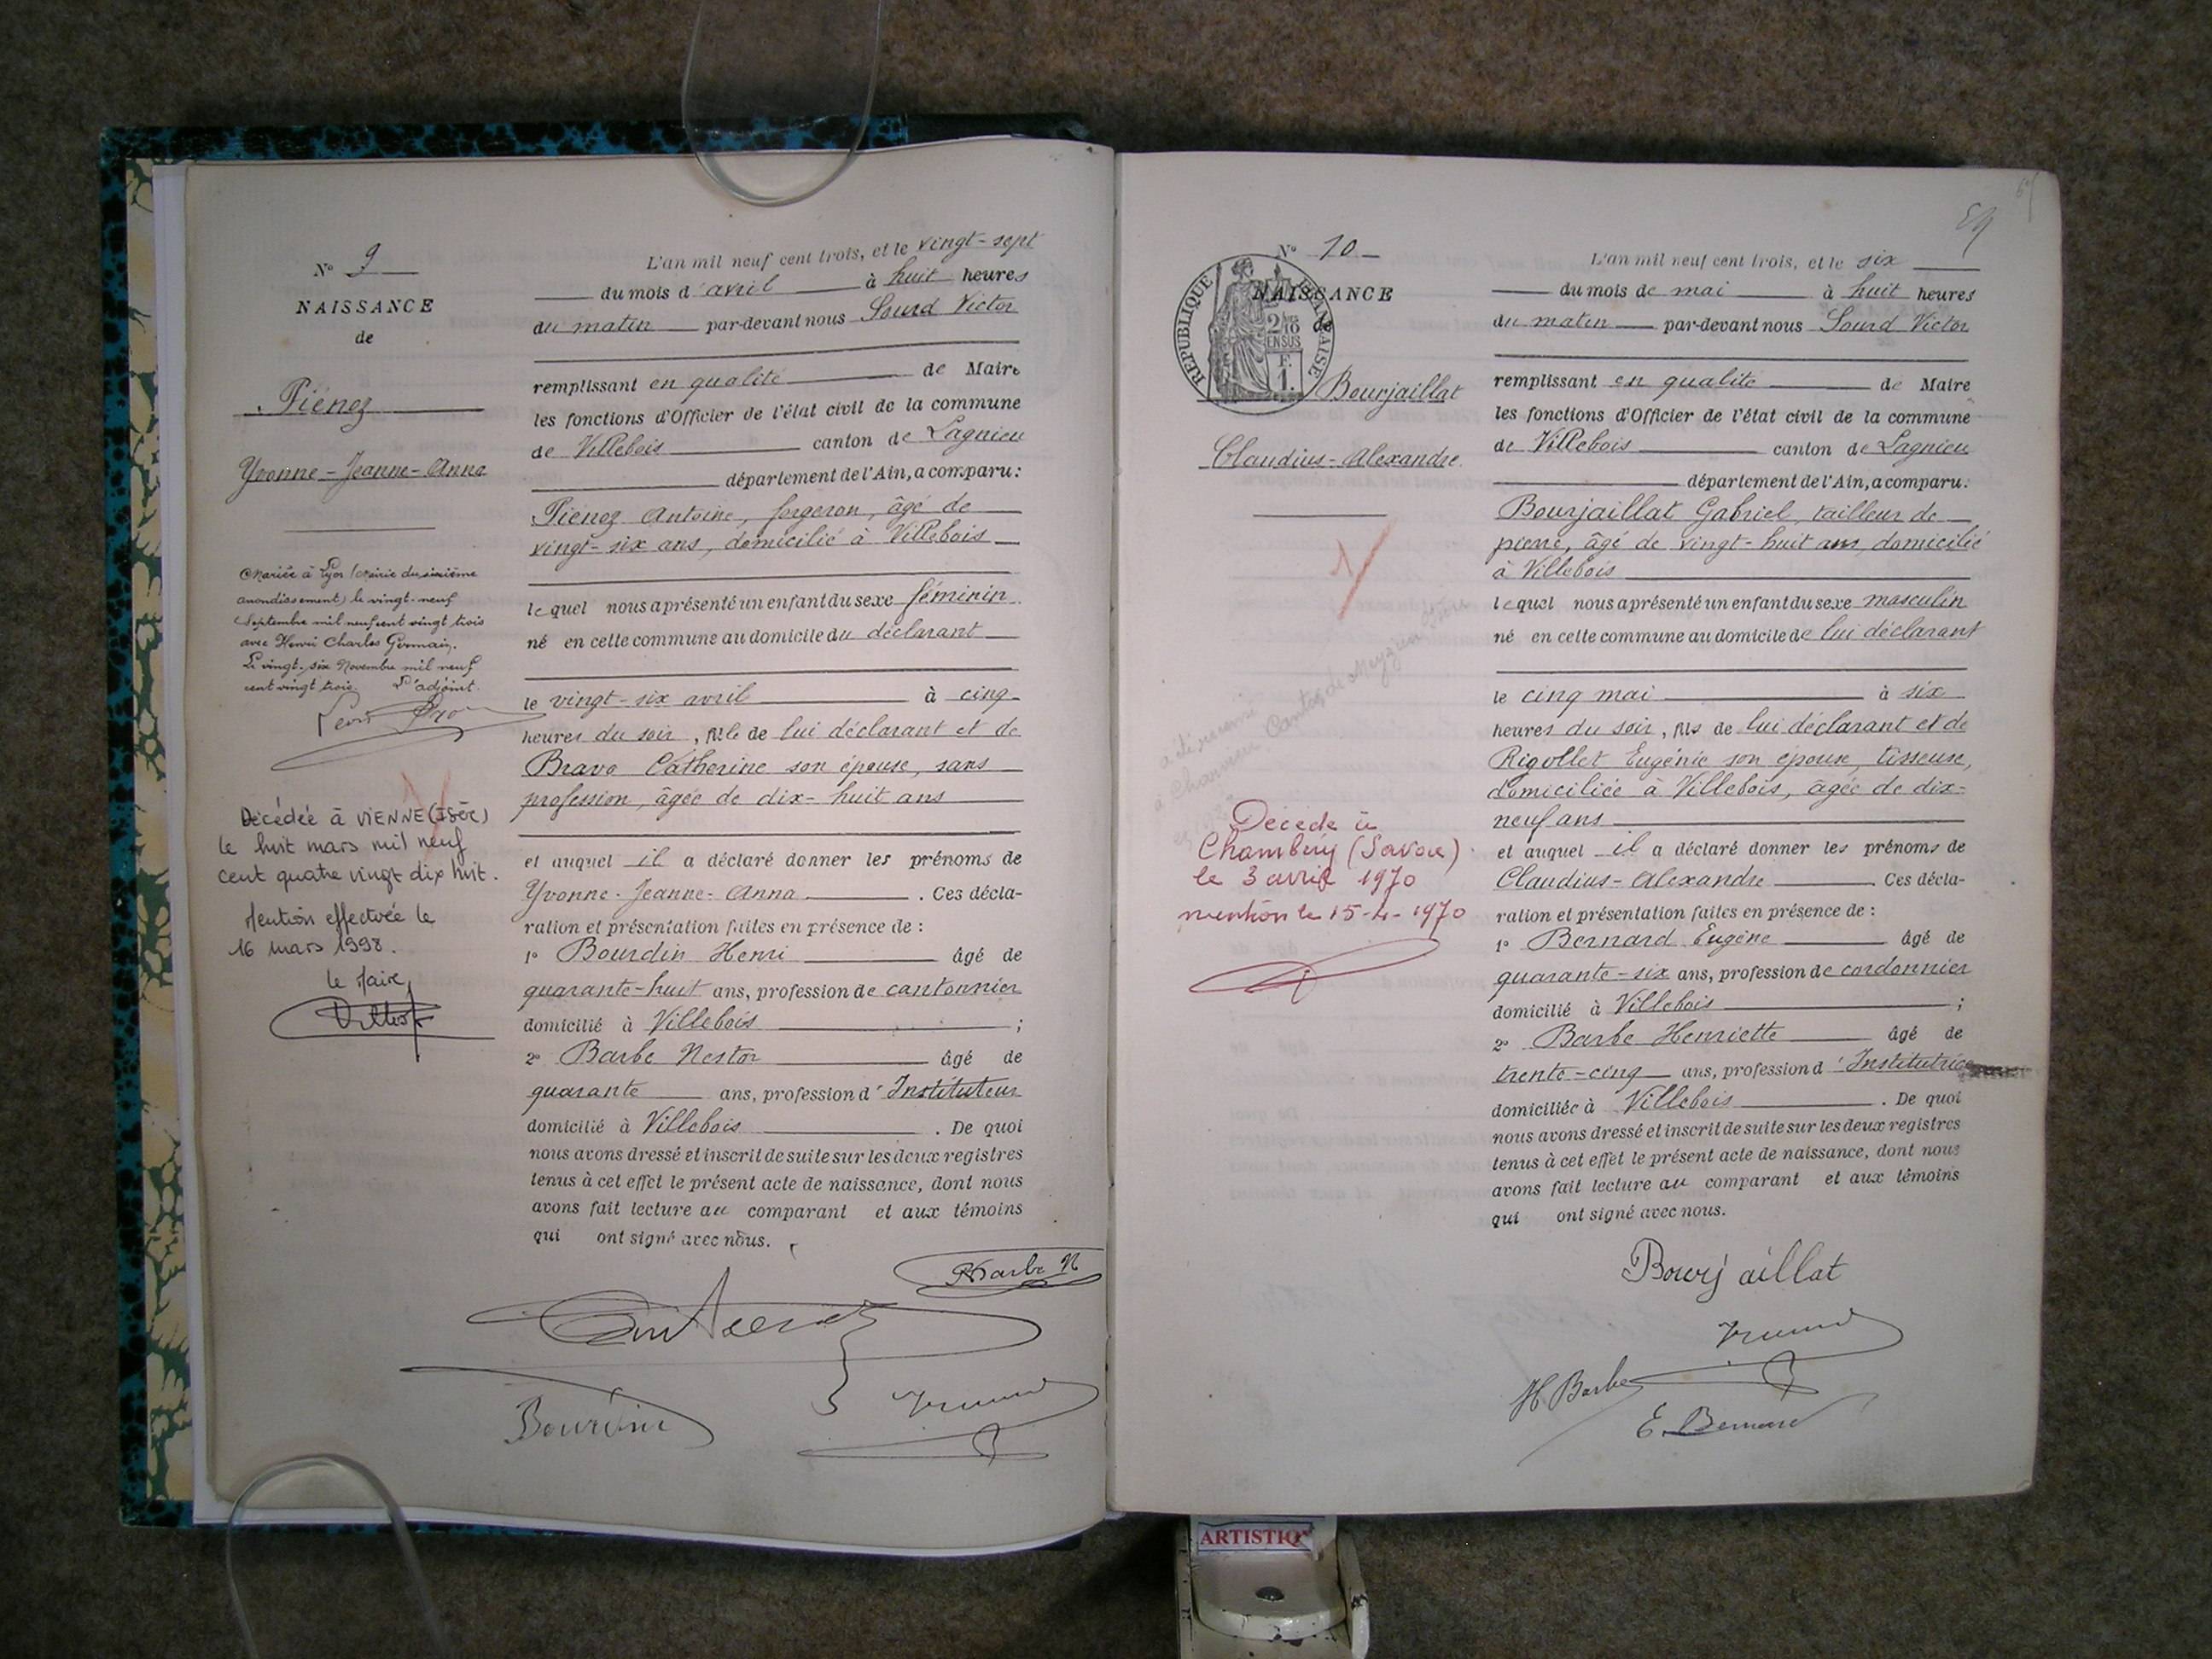 N° 9
NAISSANCE
de
Piénoz
Yvonne-Jeanne-Anna
Mariée à Lyon (Mairie du sixième
arrondissement) le vingt-neuf
Septembre mil neuf cent vingt trois
avec Henri Charles Germain.
Le vingt-six Novembre mil neuf
cent vingt trois. L'adjoint.
Décédée à VIENNE (ISÈRE)
le huit mars mil neuf
cent quatre vingt dix huit.
Mention effectuée le
16 mars 1998.
le Maire,
L'an mil neuf cent trois, et le vingt-sept
du mois d'avril à huit heures
du matin par-devant nous Sourd Victor
remplissant en qualité de Maire
les fonctions d'Officier de l'état civil de la commune
de Villebois canton de Lagnieu
département de l'Ain, a comparu:
Piénoz Antoine, forgeron, âgé de
vingt-six ans, domicilié à Villebois
lequel nous a présenté un enfant du sexe féminin
né en cette commune au domicile du déclarant
le vingt-six avril à cinq
heures du soir, fille de lui déclarant et de
Bravo Catherine son épouse, sans
profession, âgée de dix-huit ans
et auquel il a déclaré donner les prénoms de
Yvonne-Jeanne-Anna. Ces décla-
ration et présentation faites en présence de :
1° Bourdin Henri âgé de
quarante-huit ans, profession de cantonnier
domicilié à Villebois ;
2° Barbe Nestor âgé de
quarante ans, profession d'Instituteur
domicilié à Villebois. De quoi
nous avons dressé et inscrit de suite sur les deux registres
tenus à cet effet le présent acte de naissance, dont nous
avons fait lecture au comparant et aux témoins
qui ont signé avec nous.
Barbe N
Bourdin
N° 10
NAISSANCE
de
RÉPUBLIQUE FRANÇAISE
2/10
EN SUS
F.
1.
Bourjaillat
Claudius-Alexandre
1
Décédé à
Chambéry (Savoie)
le 3 avril 1970
mention le 15-4-1970
L'an mil neuf cent trois, et le six
du mois de mai à huit heures
du matin par-devant nous Sourd Victor
remplissant en qualité de Maire
les fonctions d'Officier de l'état civil de la commune
de Villebois canton de Lagnieu
département de l'Ain, a comparu:
Bourjaillat Gabriel, tailleur de
pierre, âgé de vingt-huit ans, domicilié
à Villebois
lequel nous a présenté un enfant du sexe masculin
né en cette commune au domicile de lui déclarant
le cinq mai à six
heures du soir, fils de lui déclarant et de
Rigollet Eugénie son épouse, tisseuse,
domiciliée à Villebois, âgée de dix-
neuf ans
et auquel il a déclaré donner les prénoms de
Claudius-Alexandre. Ces décla-
ration et présentation faites en présence de :
1° Bernard Eugène âgé de
quarante-six ans, profession de cordonnier
domicilié à Villebois ;
2° Barbe Henriette âgé de
trente-cinq ans, profession d'Institutrice
domiciliée à Villebois. De quoi
nous avons dressé et inscrit de suite sur les deux registres
tenus à cet effet le présent acte de naissance, dont nous
avons fait lecture au comparant et aux témoins
qui ont signé avec nous.
Bourjaillat
H Barbe
E. Bernard
ARTISTIQ